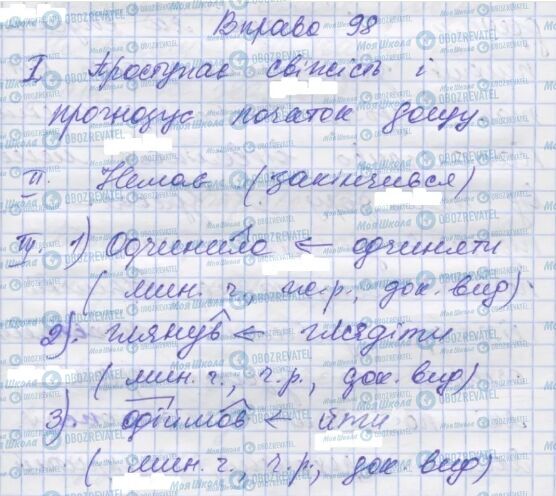 Вправа 98
I. Проступає свіжість і
прогнозує початок дощу.
II. Немов (закінчився)
III 1) Одчинило ← одчиняти
(мин. ч., ж.р., док. вид)
2). глянув ← глядіти
(мин. ч., ч.р., док. вид)
3). одіймов ← йти
(мин. ч., ч.р., док. вид)